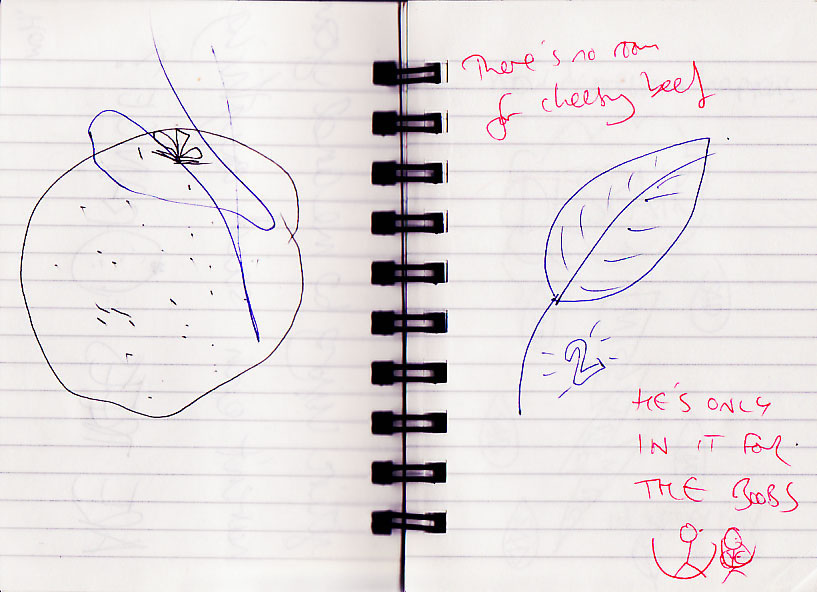 There's no room
for cheesy beef
2
HE'S ONLY
IN IT FOR
THE BOOBS